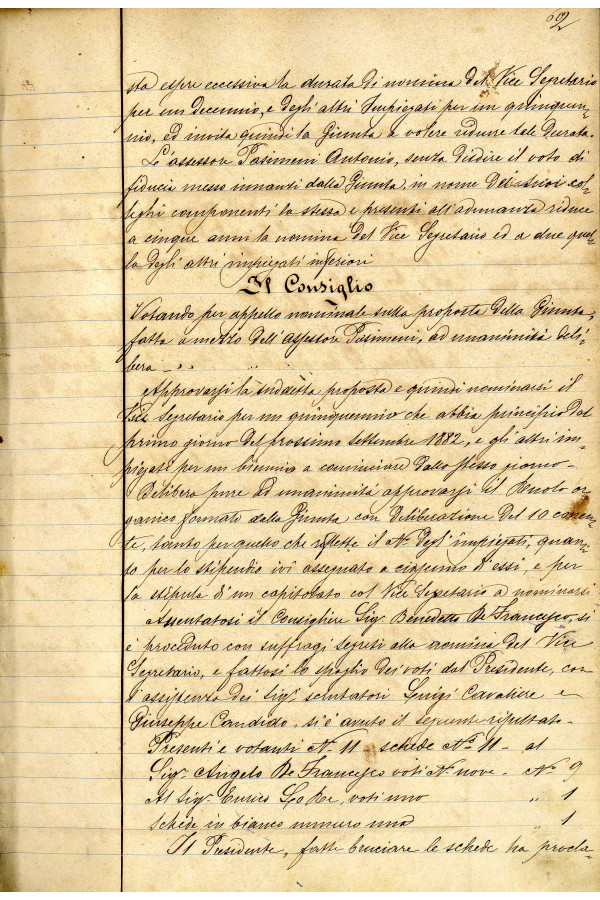 62
sta essere eccessiva la durata di nomina del Vice Segretario
per un decennio, e degli altri Impiegati per un quinquen-
nio, ed invita quindi la Giunta a volere ridurre tale durata.
L'assessore Pasimeni Antonio, senza disdire il voto di
fiducia messo innanzi dalla Giunta, in nome dei suoi col-
leghi componenti la stessa e presenti all'adunanza riduce
a cinque anni la nomina del Vice Segretario ed a due quel-
la degli altri impiegati inferiori
Il Consiglio
Votando per appello nominale sulla proposta della Giunta,
fatta a mezzo dell'assessore Pasimeni, ad unanimità deli-
bera
Approvarsi la suddetta proposta e quindi nominarsi il
Vice Segretario per un quinquennio che abbia principio dal
primo giorno del prossimo settembre 1882, e gli altri im-
piegati per un biennio a cominciare dallo stesso giorno -
Delibera pure ad unanimità approvarsi il Ruolo or-
ganico formato dalla Giunta con deliberazione del 10 corren-
te, tanto per quello che riflette il N. degl'impiegati, quan-
to per lo stipendio ivi assegnato a ciascuno d'essi, e per
la stipula di un capitolato col Vice Segretario a nominarsi
Assentatosi il Consigliere Sig. Benedetto De Francesco, si
è proceduto con suffragi segreti alla nomina del Vice
Segretario, e fattosi lo spoglio dei voti dal Presidente, con
l'assistenza dei Sigri scrutatori Luigi Cavaliere e
Giuseppe Candido, si è avuto il seguente risultato -
Presenti e votanti N. 11 - schede N. 11 - al
Sigr. Angelo De Francesco voti N. nove - N. 9
Al Sigr. Enrico Lo Re, voti uno " 1
Schede in bianco numero una " 1
Il Presidente, fatte bruciare le schede ha procla-